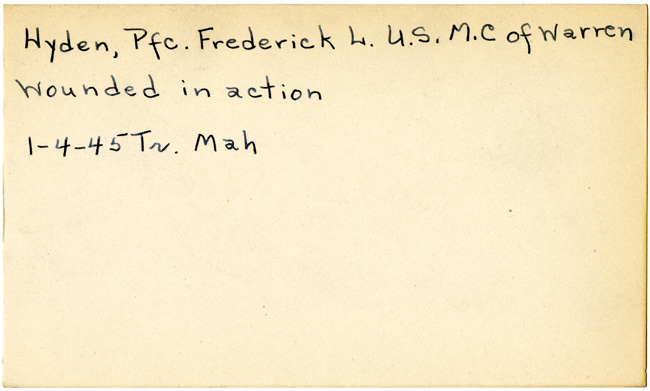 Hyden, Pfc. Frederick L. U.S. M.C of Warren
Wounded in action
1-4-45 Tr. Mah